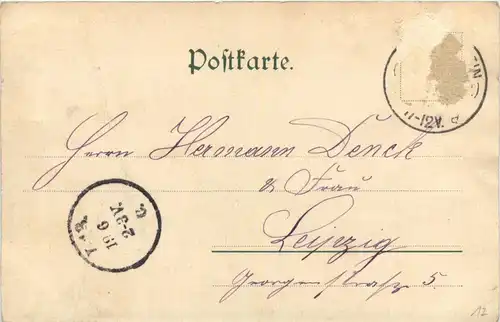 Postkarte.
11-12V.
Herrn Hermann Denck
& Frau
Leipzig
Georgenstraße 5.
2-3V.
19 6
12